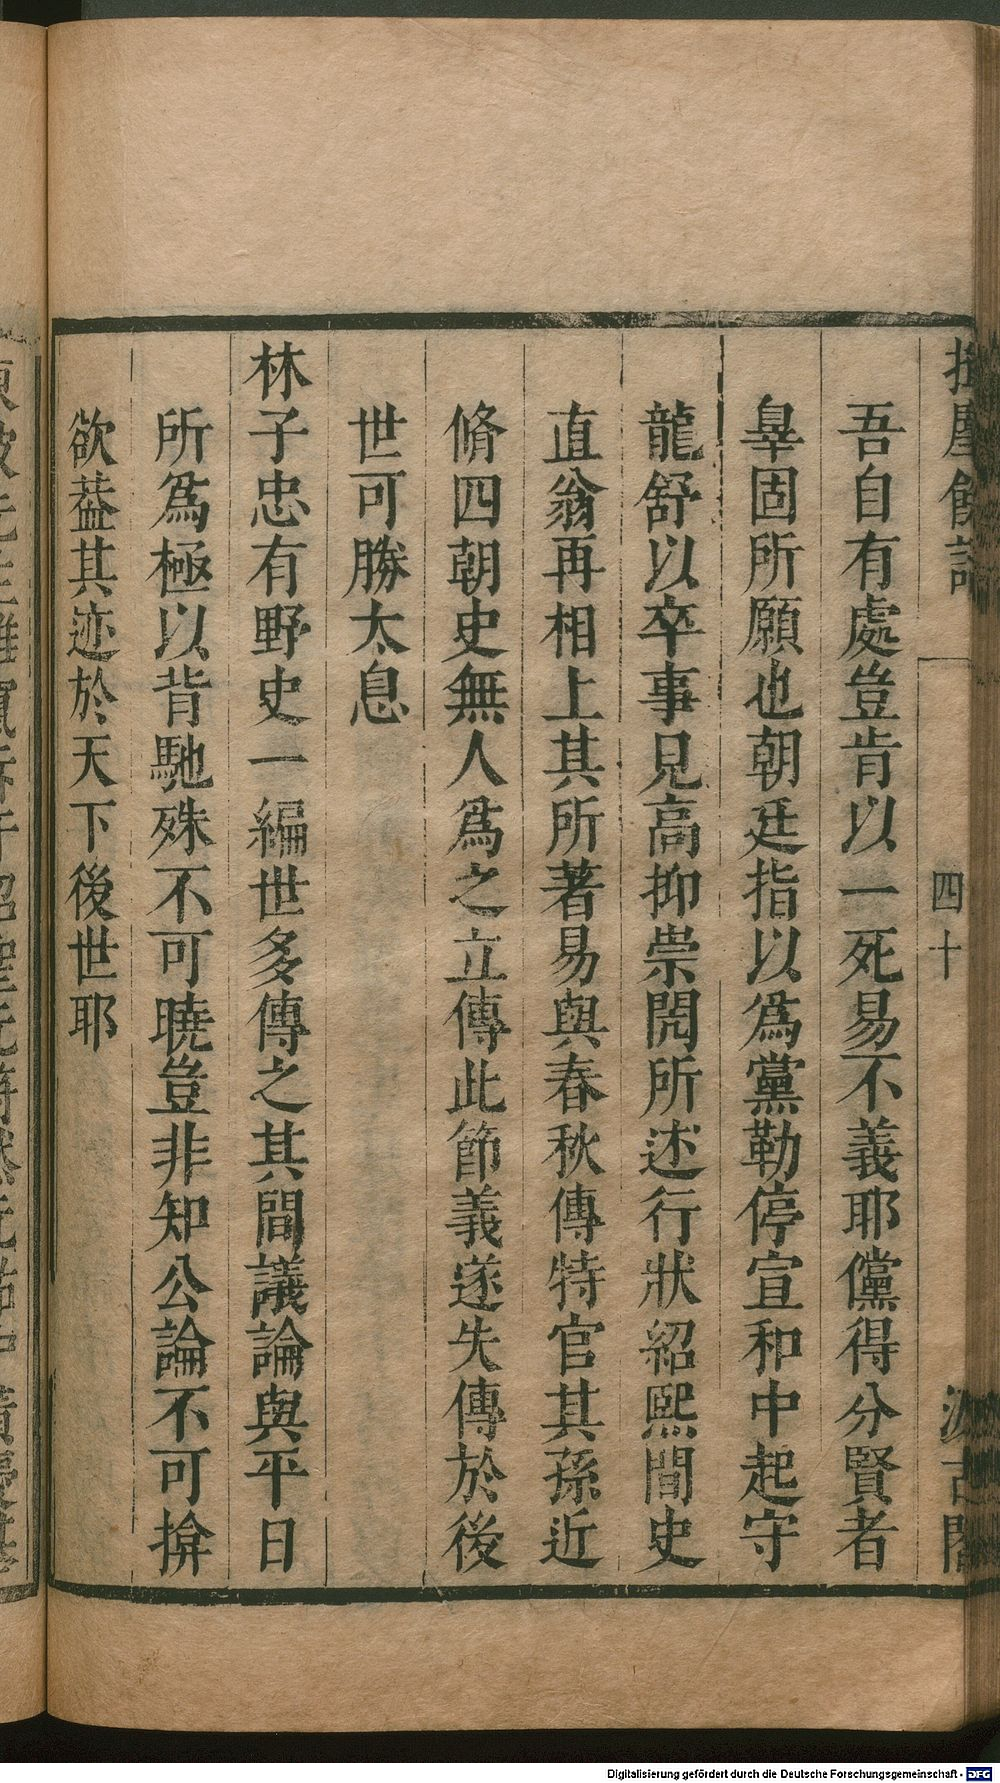 吾自有處豈肯以一死易不義耶儻得分賢者
辠固所願也朝廷指以爲黨勒停宣和中起守
龍舒以卒事見高抑崇閌所述行狀紹熙間史
直翁再相上其所著易與春秋傳特官其孫近
脩四朝史無人爲之立傳此節義遂失傳於後
世可勝太息
林子忠有野史一編世多傳之其間議論與平日
所爲極以背馳殊不可曉豈非知公論不可揜
欲葢其迹於天下後世耶
四十
Digitalisierung gefördert durch die Deutsche Forschungsgemeinschaft - DFG